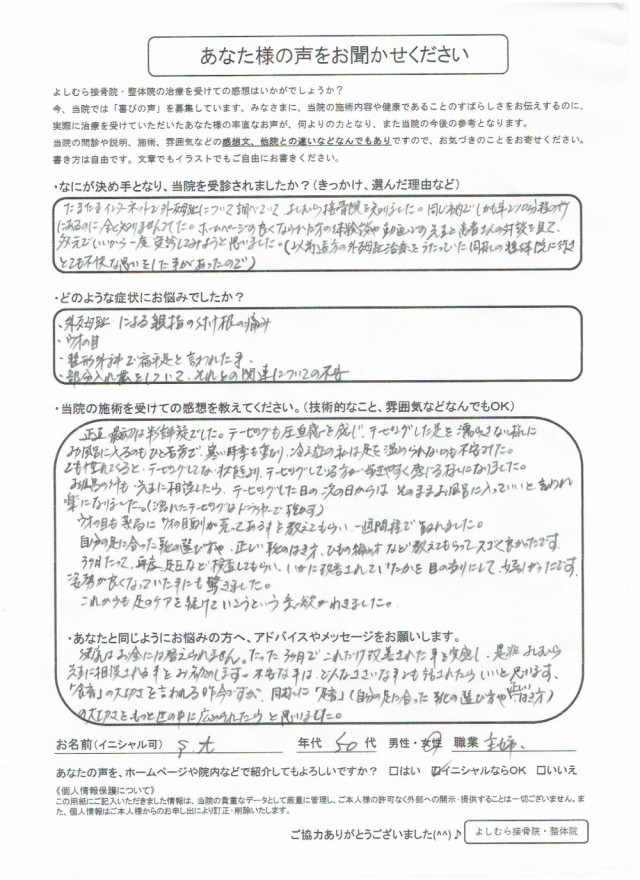 あなた様の声をお聞かせください
よしむら接骨院・整体院の治療を受けての感想はいかがでしょうか？
今、当院では「喜びの声」を募集しています。みなさまに、当院の施術内容や健康であることのすばらしさをお伝えするのに、
実際に治療を受けていただいたあなた様の率直なお声が、何よりの力となり、また当院の今後の参考となります。
当院の問診や説明、施術、雰囲気などの感想文、他院との違いなどなんでもありですので、お気づきのことをお寄せください。
書き方は自由です。文章でもイラストでもご自由にお書きください。
・なにが決め手となり、当院を受診されましたか？（きっかけ、選んだ理由など）
たまたまインターネットで外反母趾について調べていて、よしむら接骨院を知りました。同じ町でしかも車で
にあるのに、全く知りませんでした。ホームページの良くなられた方の体験談や動画での先生と患者さんの対談を見て、
ダメ元でいいから一度受診してみようと思いました。（以前遠方の外反母趾治療をうたっていた の整体院に行き
とても不快な思いをした事があったので）
・どのような症状にお悩みでしたか？
・外反母趾による親指の付け根の痛み
・ウオの目
・整形外科で扁平足と言われた事。
・部分入れ歯をしていて、それとの関連についての不安
・当院の施術を受けての感想を教えてください。（技術的なこと、雰囲気などなんでもOK）
正直最初は半信半疑でした。テーピングも圧迫感を感じ、テーピングした足を濡らさない様に
お風呂に入るのもひと苦労で、寒い時季も重なり、冷え性の私は足を温められないのも不安でした。
でも慣れてくると、テーピングしてない状態より、テーピングしている方が歩きやすく感じる様になりました。
お風呂の件も先生に相談したら、テーピングした日の次の日からはそのままお風呂に入っていいと言われ
楽になりました。（濡れたテーピングはドライヤーで乾かす）
ウオの目も薬局にウオの目削りが売ってある事を教えてもらい、一週間程で取れました。
自分の足に合った靴の選び方や、正しい靴のはき方、ひもの結び方など教えてもらってスゴく良かったです。
3ヶ月たって、再度、足圧など検査してもらい、いかに改善されていたかを目の当りにして、
姿勢が良くなっていた事にも驚きました。
これからも足のケアを続けていこうという意欲がわきました。
・あなたと同じようにお悩みの方へ、アドバイスやメッセージをお願いします。
健康はお金には替えられません。たった3ヶ月でこれだけ改善された事を実感し、是非よしむら
先生に相談される事をお勧めします。不安な事は、どんなささいな事でも話されたらいいと思います。
「食育」の大切さを言われる昨今ですが、同様に「足育」（自分の足に合った靴の選び方や正しい歩き方）
の大切さをもっと世の中に広められたらと思いました。
お名前(イニシャル可) S.大 年代 50代 男性・女性 職業 主婦.
あなたの声を、ホームページや院内などで紹介してもよろしいですか？ □はい ☑イニシャルならOK □いいえ
《個人情報保護について》
この用紙にご記入いただきました情報は、当院の貴重なデータとして厳重に管理し、ご本人様の許可なく外部への開示・提供することは一切ございません。ま
た、個人情報はご本人様からのお申し出により訂正・削除いたします。
ご協力ありがとうございました(^^)♪ よしむら接骨院・整体院